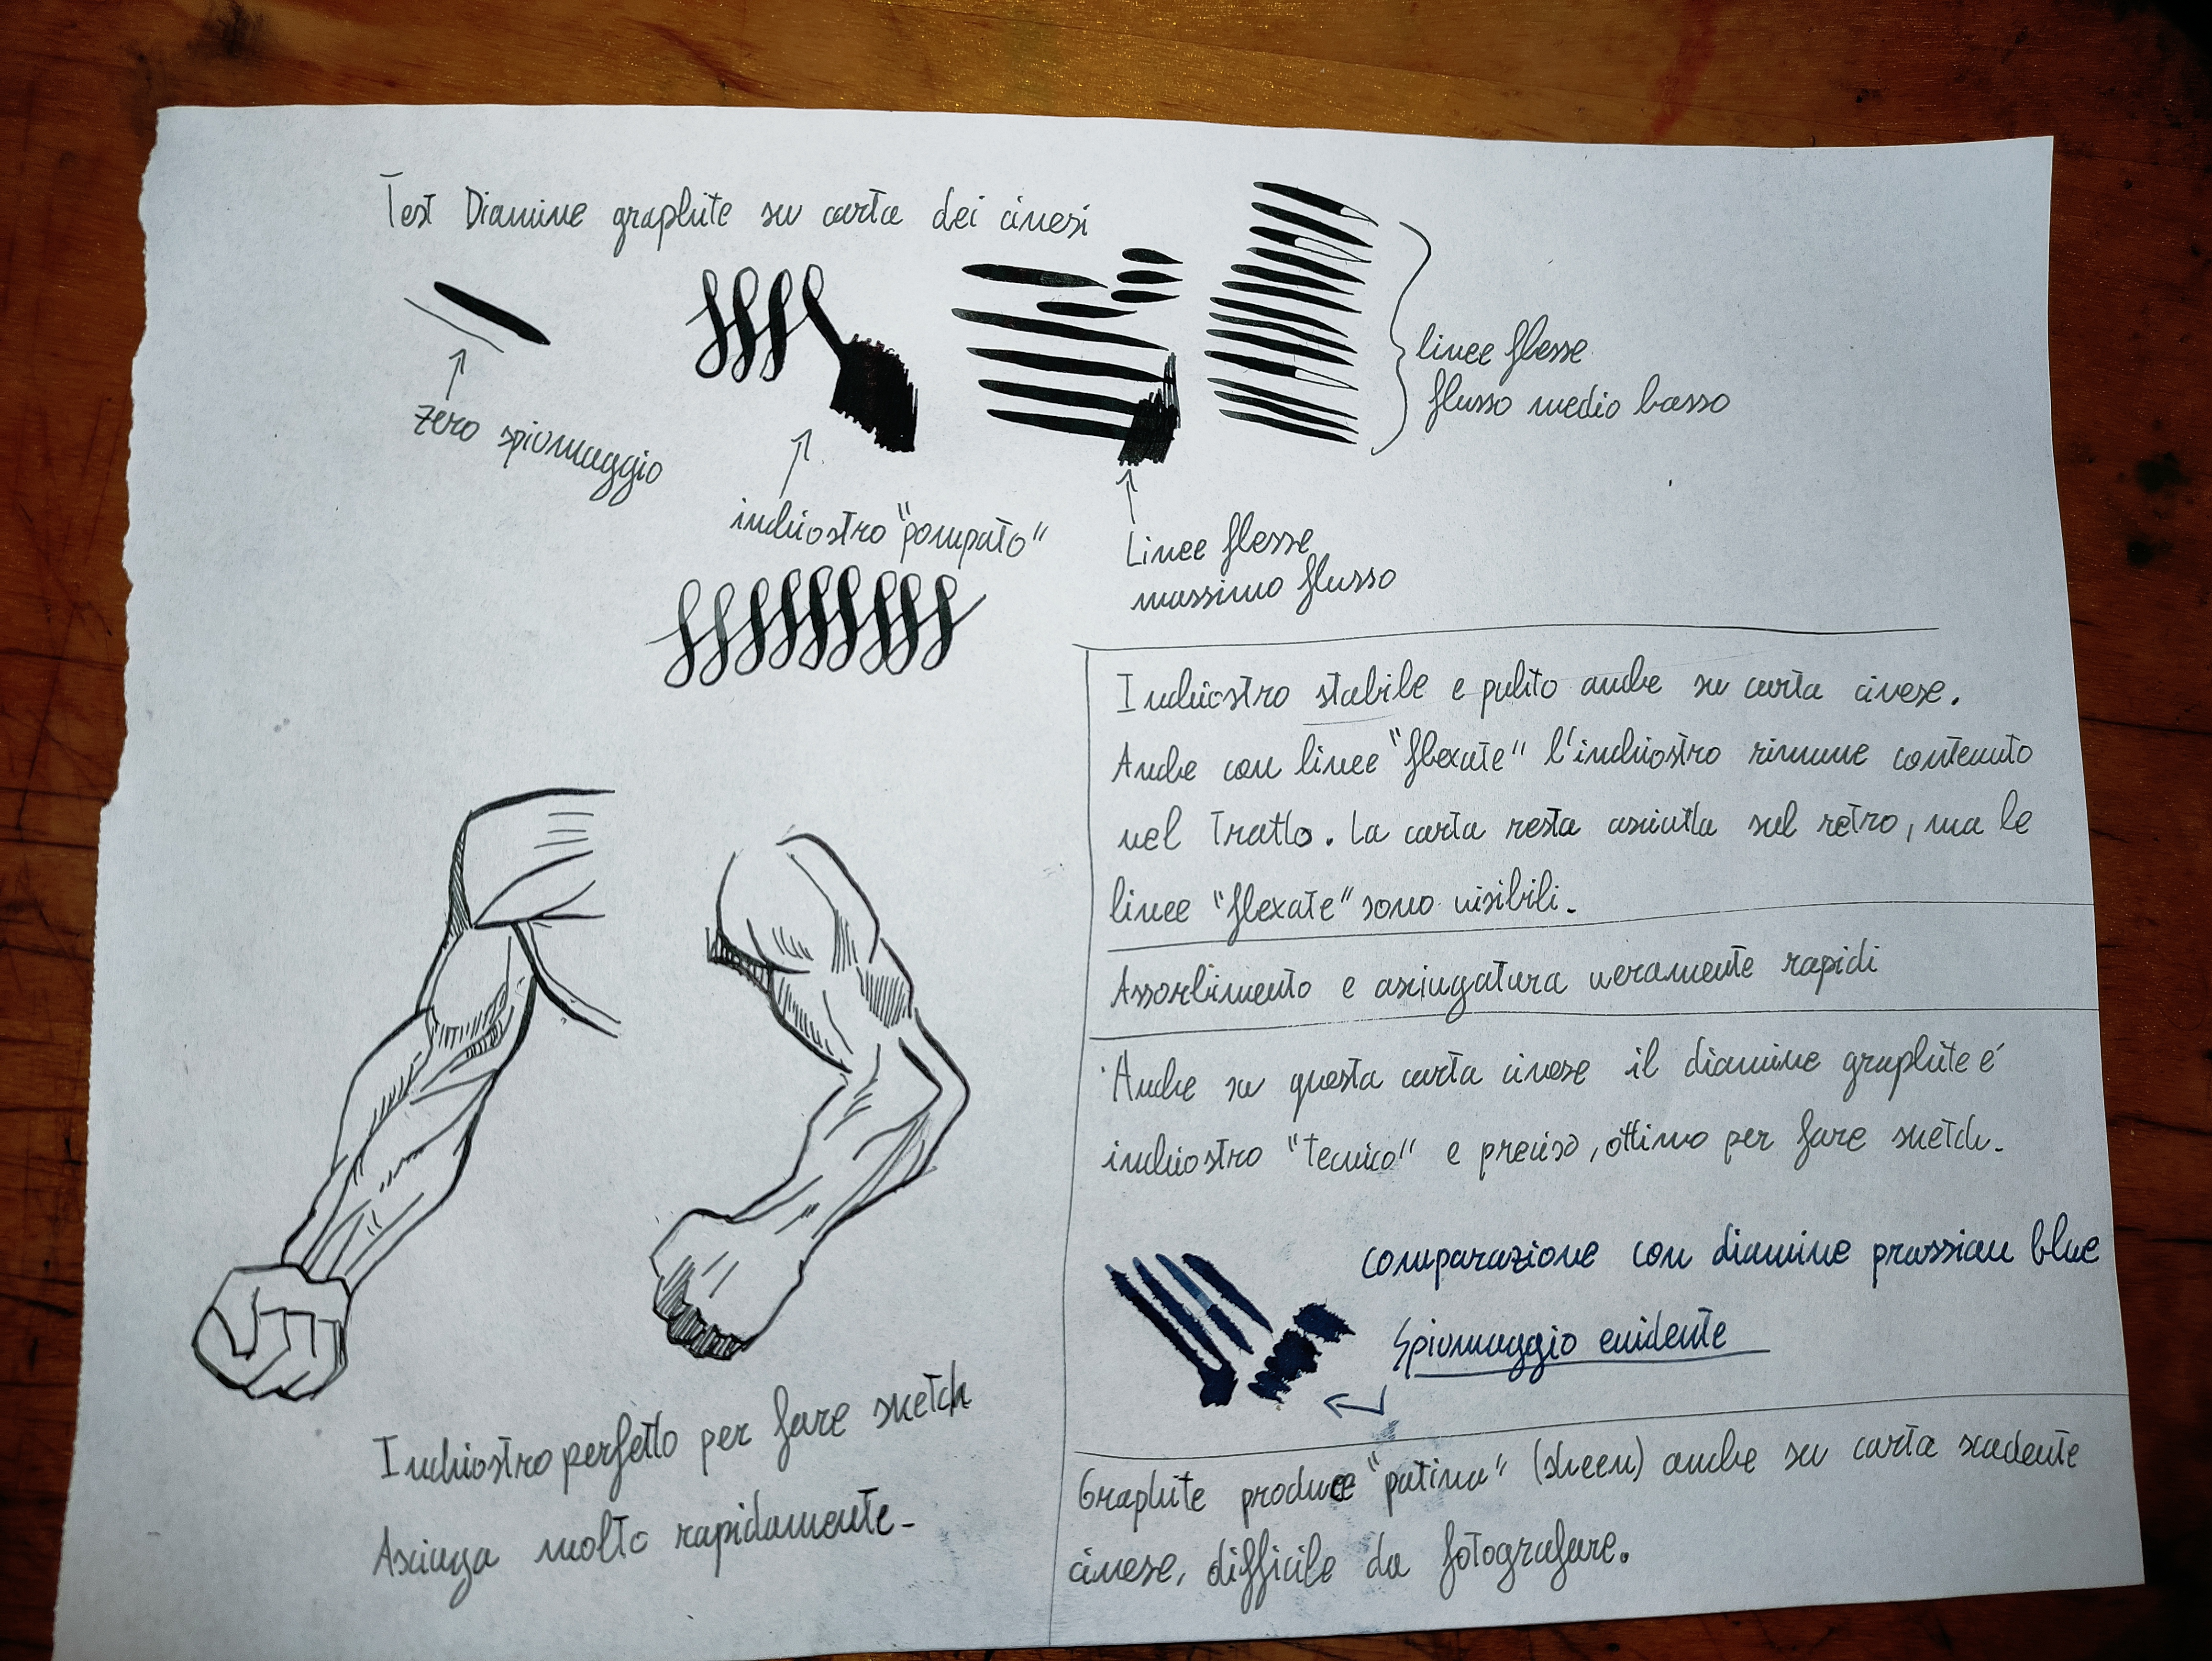 Test Diamine graphite su carta dei cinesi
zero spiumaggio
inchiostro "pompato"
linee flesse
flusso medio basso
Linee flesse
massimo flusso
Inchiostro stabile e pulito anche su carta cinese.
Anche con linee "flexate" l'inchiostro rimane contenuto
nel tratto. La carta resta asciutta sul retro, ma le
linee "flexate" sono visibili.
Assorbimento e asciugatura veramente rapidi
Anche su questa carta cinese il diamine graphite é
inchiostro "tecnico" e preciso, ottimo per fare sketch.
comparazione con diamine prussian blue
Spiumaggio evidente
Graphite produce "patina" (sheen) anche su carta scadente
cinese, difficile da fotografare.
Inchiostro perfetto per fare sketch
Asciuga molto rapidamente.